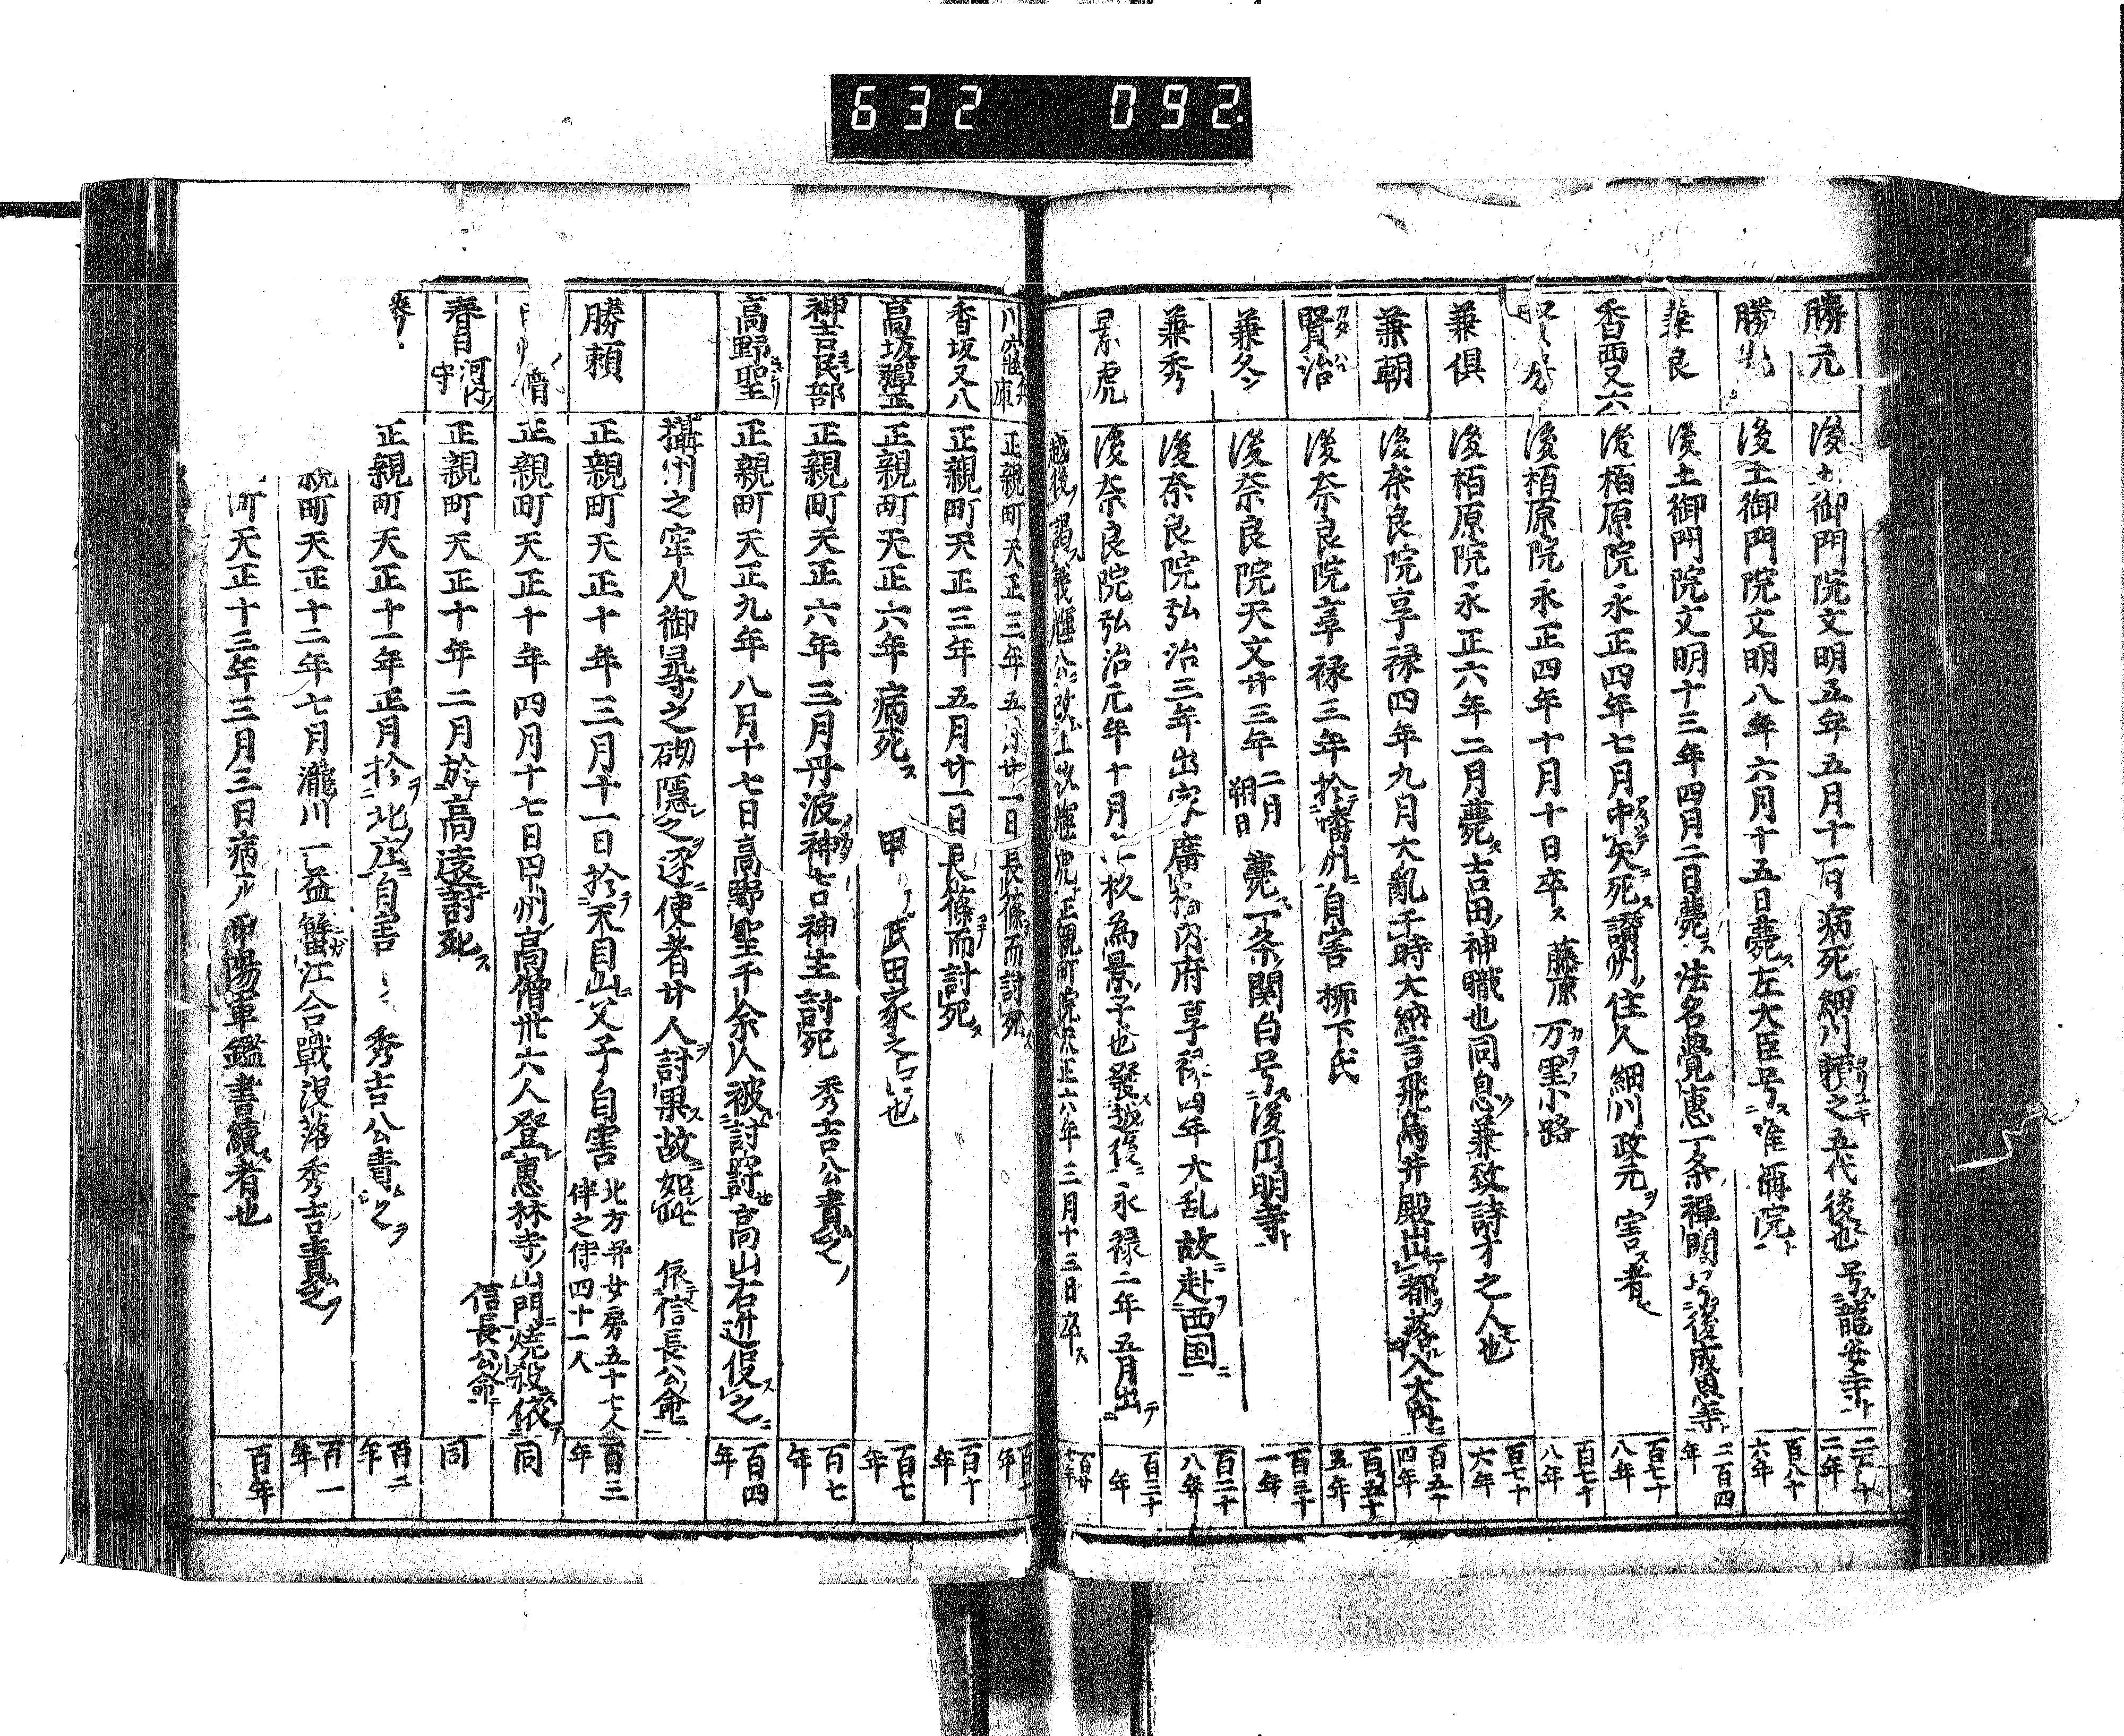 632 092.
勝元 後土御門院文明五年五月十一日病死細川頼之五代後也号龍安寺 二年
後土御門院文明八年六月十五日薨左大臣号准禅院 百八十六年
兼良 後土御門院文明十三年四月二日薨法名覺恵一条禅閤号後成恩寺 二百四年
香西又六 後柏原院永正四年七月中矢死讃州住人細川政元害者 百七十八年
後柏原院永正四年十月十日卒藤原万里小路 百七十八年
兼倶 後柏原院永正六年二月薨吉田神職也同息兼致詩才之人也 百七十六年
兼朝 後奈良院享禄四年九月大亂于時大納言飛鳥井殿出都落入大内 百五十四年
賢治 後奈良院享禄三年於播州自害柳下氏 百五十五年
兼冬 後奈良院天文廿三年二月朔日薨一条関白号後円明寺 百三十一年
兼秀 後奈良院弘治三年出家廣橋内府享禄四年大乱故赴西国 百二十八年
景虎 後奈良院弘治元年十月上杉為景子也發越後永禄二年五月出 百三十年
越後謁義輝公改上杦輝虎正親町院天正六年三月十三日卒 百廿七年
正親町天正三年五月廿一日長篠而討死
香坂又八 正親町天正三年五月廿一日長篠而討死 百十年
高坂彈正 正親町天正六年病死 甲 武田家之臣也 百七年
神吉民部 正親町天正六年三月丹波神吉神生討死 秀吉公責之 百七年
高野聖 正親町天正九年八月十七日高野聖千余人被討罸高山右近假之 百四年
攝州之牢人御尋之砌隱之逐使者廿人討果故如此 依信長公命
勝頼 正親町天正十年三月十一日於天目山父子自害 北方并女房五十七人 伴之侍四十一人 百三年
正親町天正十年四月十七日甲州高僧卅六人登惠林寺山門燒殺依 同
信長公命
春日河内守 正親町天正十年二月於高遠討死 同
正親町天正十一年正月於北庄自害 秀吉公責之 百二年
町天正十二年七月瀧川一益蟹江合戰没落秀吉責之 百一年
町天正十三年三月三日病 甲陽軍鑑書續者也 百年